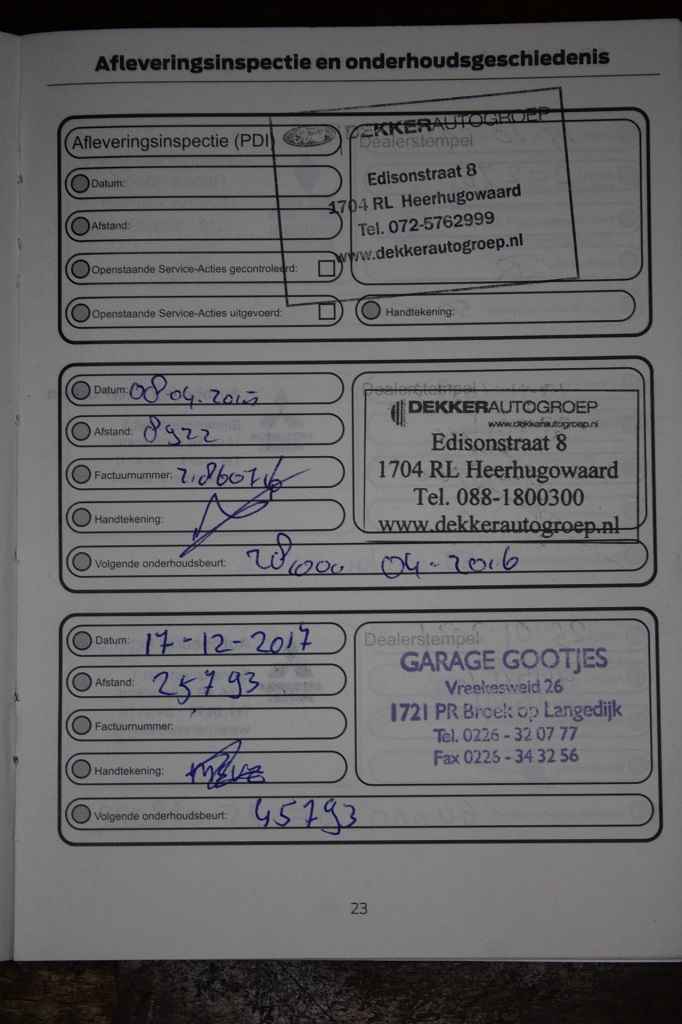 Afleveringsinspectie en onderhoudsgeschiedenis
Afleveringsinspectie (PDI)
Datum:
Afstand:
Openstaande Service-Acties gecontroleerd:
Openstaande Service-Acties uitgevoerd:
Dealerstempel
DEKKERAUTOGROEP
Edisonstraat 8
1704 RL Heerhugowaard
Tel. 072-5762999
www.dekkerautogroep.nl
Handtekening:
Datum: 08.04.2015
Afstand: 8922
Factuurnummer:
Handtekening:
Volgende onderhoudsbeurt: 28.000 04-2016
Dealerstempel
DEKKERAUTOGROEP
www.dekkerautogroep.nl
Edisonstraat 8
1704 RL Heerhugowaard
Tel. 088-1800300
www.dekkerautogroep.nl
Datum: 17-12-2017
Afstand: 25793
Factuurnummer:
Handtekening:
Volgende onderhoudsbeurt: 45793
Dealerstempel
GARAGE GOOTJES
Vreekesweid 26
1721 PR Broek op Langedijk
Tel. 0226 - 32 07 77
Fax 0226 - 34 32 56
23